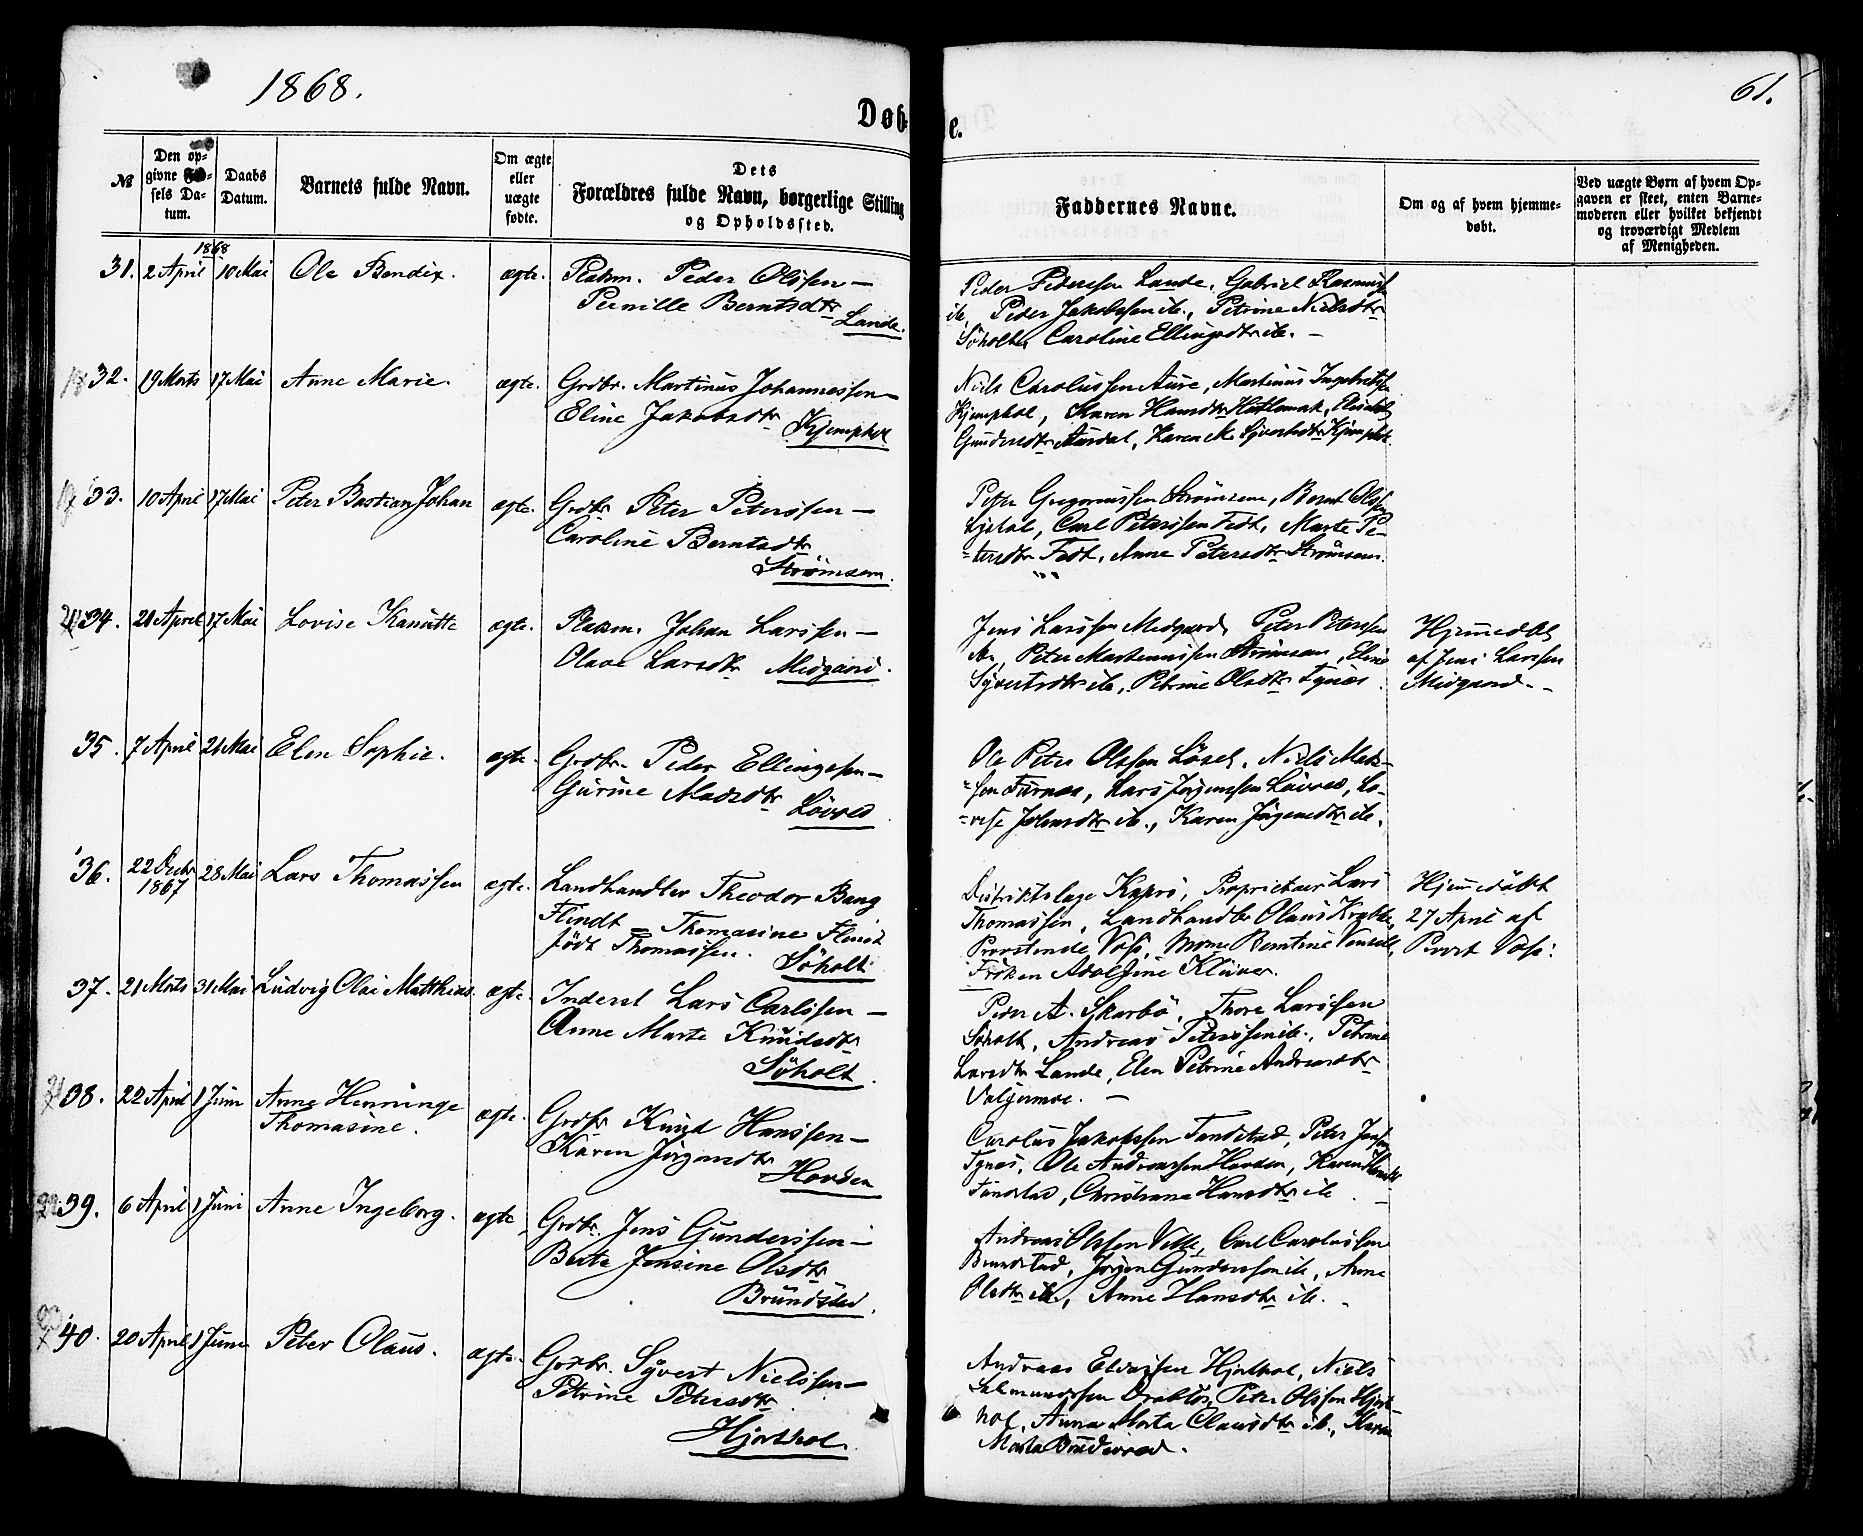 1868.
61.
Døbte.
№
Den op-
givne Fød-
sels Da-
tum.
Daabs
Datum.
Barnets fulde Navn.
Om ægte
eller
uægte
fødte.
Dets
Forældres fulde Navn, borgerlige Stilling
og Opholdssted.
Faddernes Navne.
Om og af hvem hjemme-
døbt.
Ved uægte Børn af hvem Op-
gaven er skeet, enten Barne-
moderen eller hvilket bekjendt
og troværdigt Medlem
af Menigheden.
1868
31. 2 April 10 Mai Ole Bendix. ægte. Pladsm. Peder Olssen –
Pernille Berntsdtr
Lande.
Peder Pederssen Lande, Gabriel Rasmuss
ib, Peder Jakobssen ib., Petrine Nielsdtr
Söholt, Caroline Ellingsdtr ib. –
32. 19 Marts 17 Mai Anne Marie. ægte. Grdbr. Martinus Johannessen –
Eline Jakobsdtr Kjemphol
Niels Carolussen Aure, Martinus Ingebritssen
Kjemphol, Karen Hansdtr
Gundersdtr Aursdal, Karen M. Syvertsdtr Kjemphol
33. 10 April 17 Mai Peter Bastian Johan ægte. Grdbr Peter Peterssen –
Caroline Berntsdtr
Strömsem.
Gregoriussen Strömsem, Bernt Olss
Carl Peterssen Fedt, Marte Pe-
-tersdtr Fedt, Anne Petersdtr Strömsem.
34. 21 April 17 Mai Lovise Kanutte ægte. Pladsm. Johan Larssen –
Olave Larsdtr Midgaard.
Jens Larssen Midgaard, Peter Peterssen
ib., Peter Martinussen Strömsem, Eline
Syvertsdtr ib., Petrine Olsdtr Tynes.
Hjemedöbt
af Jens Larssen
Midgaard. -
35. 7 April 21 Mai Elen Sophie. ægte. Grdbr. Peder Ellingssen –
Gurine Madsdtr
Lövold
Ole Peter Olssen Löset, Niels Mads-
-sen Furnes, Lars Jörgenssen Lövold, Lo-
-vise Johnsdtr ib., Karen Jörgensdtr ib.
36. 22 Decbr
1867 28 Mai Lars Thomassen ægte. Landhandler Theodor Bang
Flindt – Thomasine Flindt
født Thomassen. Söholt
Distriktslæge Kahrs, Proprietær Lars
Thomassen, Landhandler Olaus Krabbe,
Provstinde Voss, Mome Berntine
Fröken Adolfine Klüver.
Hjemedöbt
27 April af
Provst Voss.
37. 21 Marts 31 Mai Ludvig Olai Matthias. ægte. Inderst Lars Carlssen –
Anne Marte Knudsdtr
Söholt.
Peder A. Skarbö, Thore Larssen
Söholt, Andreas Peterssen ib., Petrine
Larsdtr Lande, Elen Petrine Andreasdtr
Valgermoe. –
38. 22 April 1 Juni Anne Henninge
Thomasine. ægte. Grdbr Knud Hanssen –
Karen Jörgensdtr
Hovden
Carolus Jakobssen Tandstad, Peter
Tynes, Ole Andreassen Hovden, Karen
Tandstad, Christiane Hansdtr ib.
39. 6 April 1 Juni Anne Ingeborg. ægte Grdbr. Jens Gunderssen –
Berte Jensine Olsdtr
Brundstad.
Andreas Olssen Velle, Carl Carolussen
Brundstad, Jörgen Gunderssen ib., Anne
Olsdtr ib., Anne Hansdtr ib.
40. 20 April 1 Juni Peter Olaus. ægte. Grdbr. Syvert Nielssen –
Petrine Petersdtr.
Hjorthol.
Andreas Hjorthol, Niels
Peter Olssen Hjort-
hol, Anne Marta Clausdtr ib., Karen
Marta